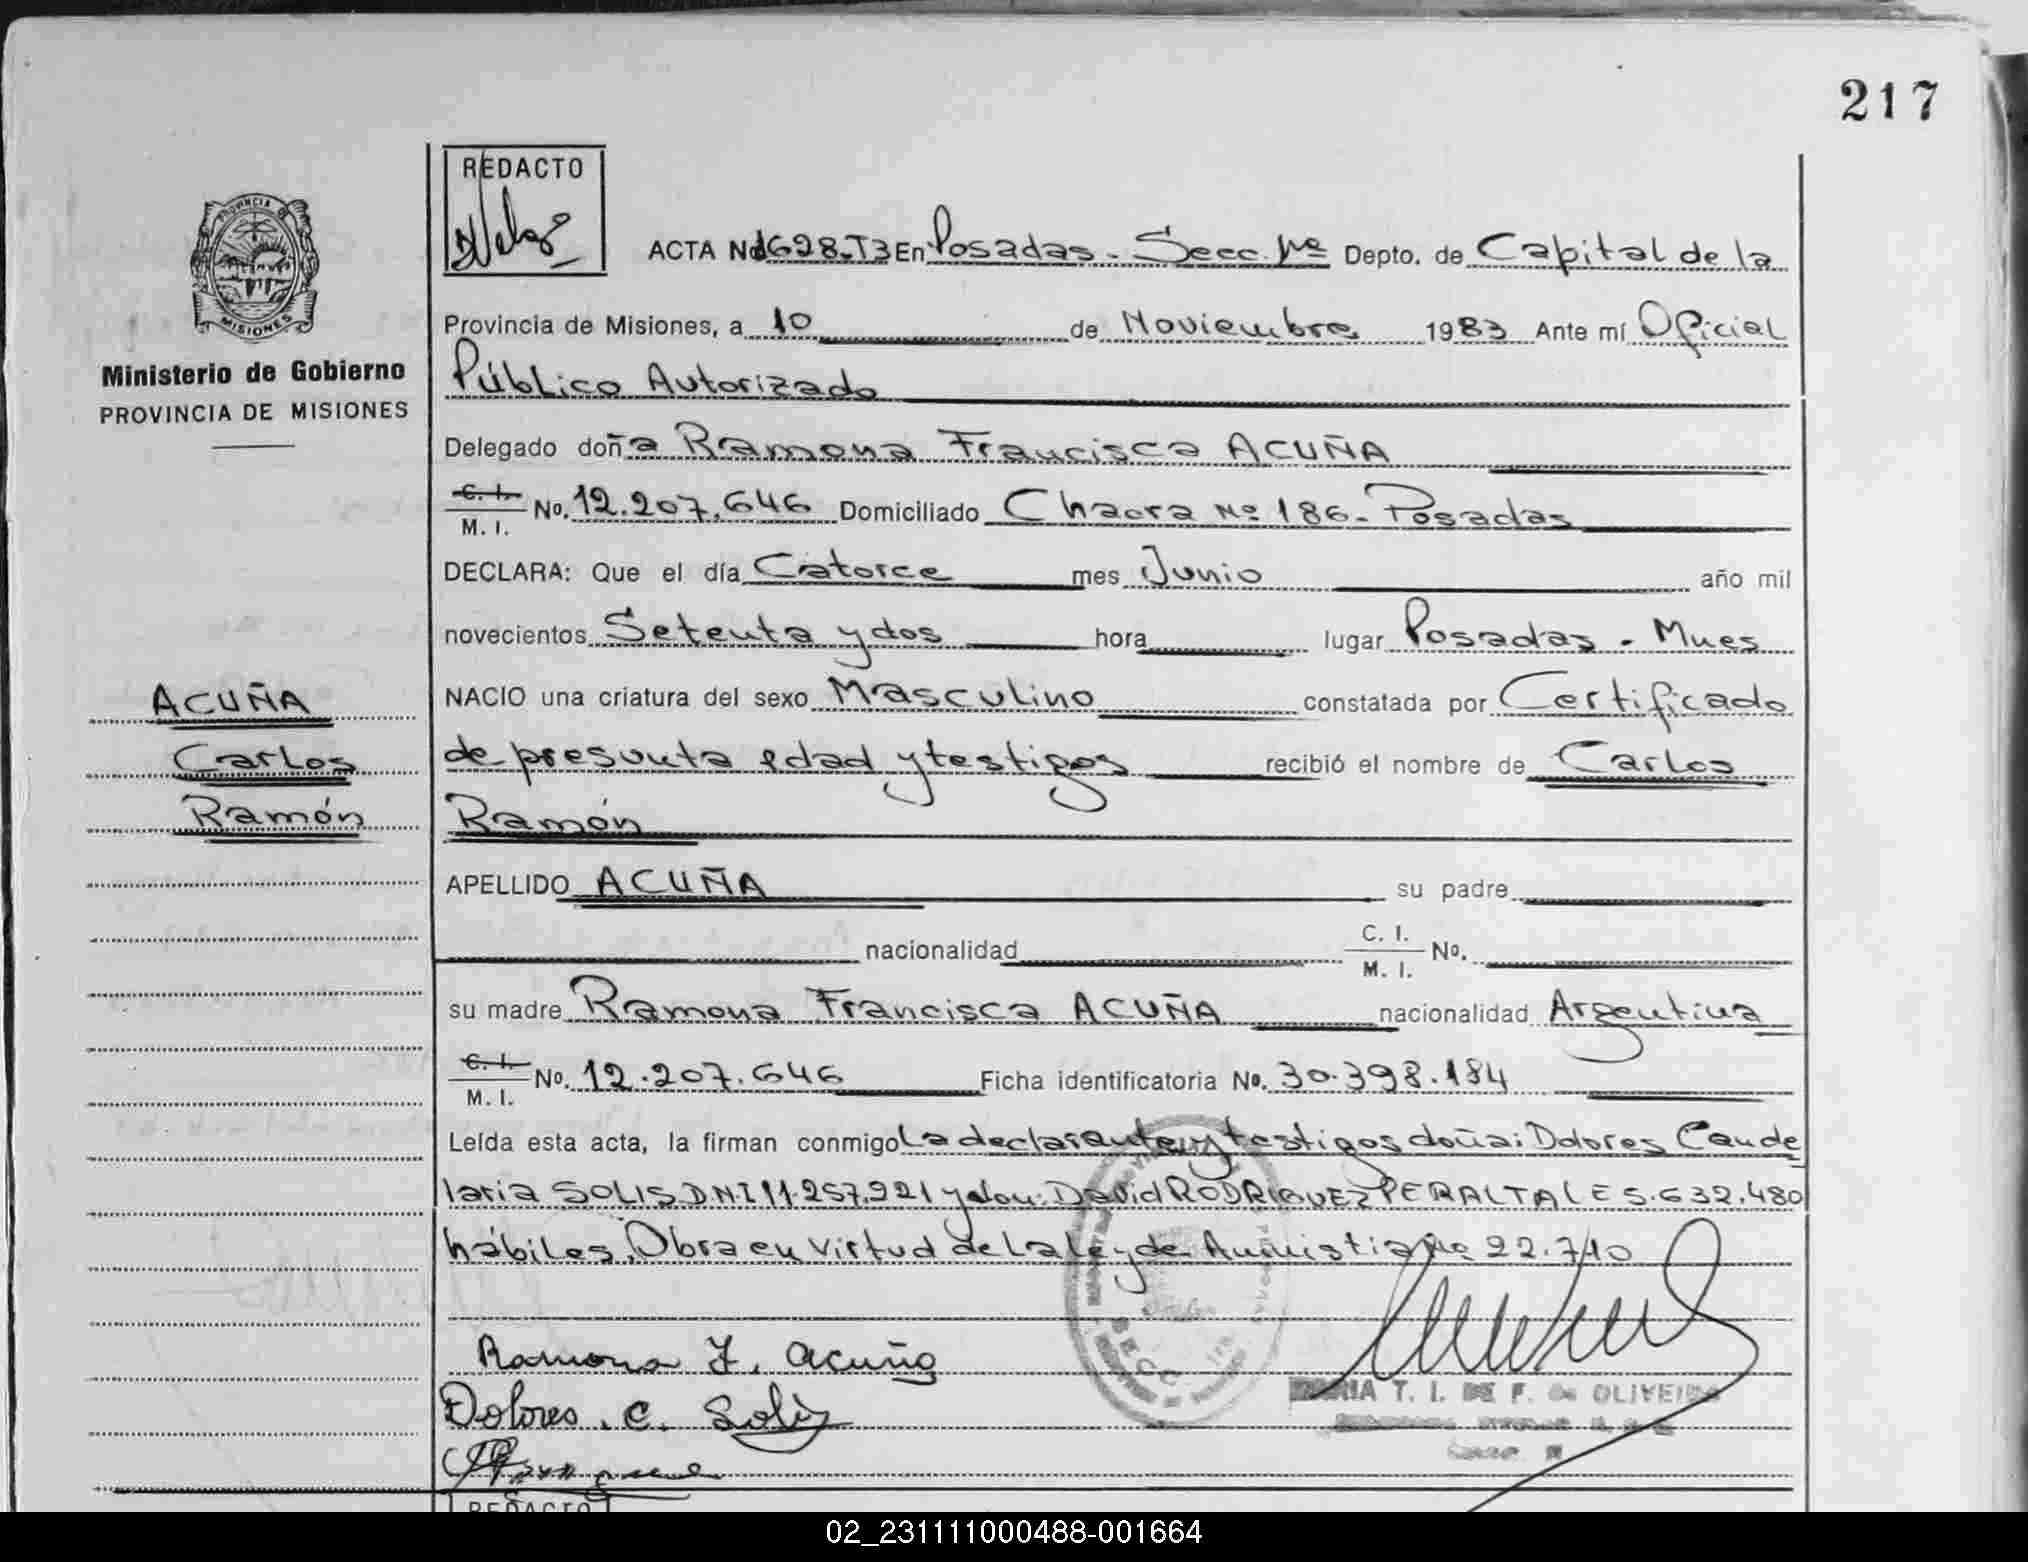 217
REDACTO
PROVINCIA DE
MISIONES
Ministerio de Gobierno
PROVINCIA DE MISIONES
ACTA No 1628.T3 En Posadas - Secc. 1ra Depto. de Capital de la
Provincia de Misiones, a 10 de Noviembre 1983 Ante mí Oficial
Público Autorizado
Delegado doña Ramona Francisca ACUÑA
C. I. / M. I. No. 12.207.646 Domiciliado Chacra No 186 - Posadas
DECLARA: Que el día Catorce mes Junio año mil
novecientos Setenta y dos hora lugar Posadas - Mnes
NACIO una criatura del sexo Masculino constatada por Certificado
de presunta edad y testigos recibió el nombre de Carlos
Ramón
ACUÑA
Carlos
Ramón
APELLIDO ACUÑA su padre
nacionalidad C. I. / M. I. No.
su madre Ramona Francisca ACUÑA nacionalidad Argentina
C. I. / M. I. No. 12.207.646 Ficha identificatoria No. 30.398.184
Leída esta acta, la firman conmigo La declarante y testigos doña: Dolores Cande
laria SOLIS D.N.I 11.257.921 y don: David RODRIGUEZ PERALTA L E 5.632.480
hábiles. Obra en virtud de la ley de Amnistia No 22.710
Ramona F. Acuña
Dolores. C. Solis
SECC 1ra
MARIA T. I. DE F. de OLIVEIRA
REDACTO
02_231111000488-001664